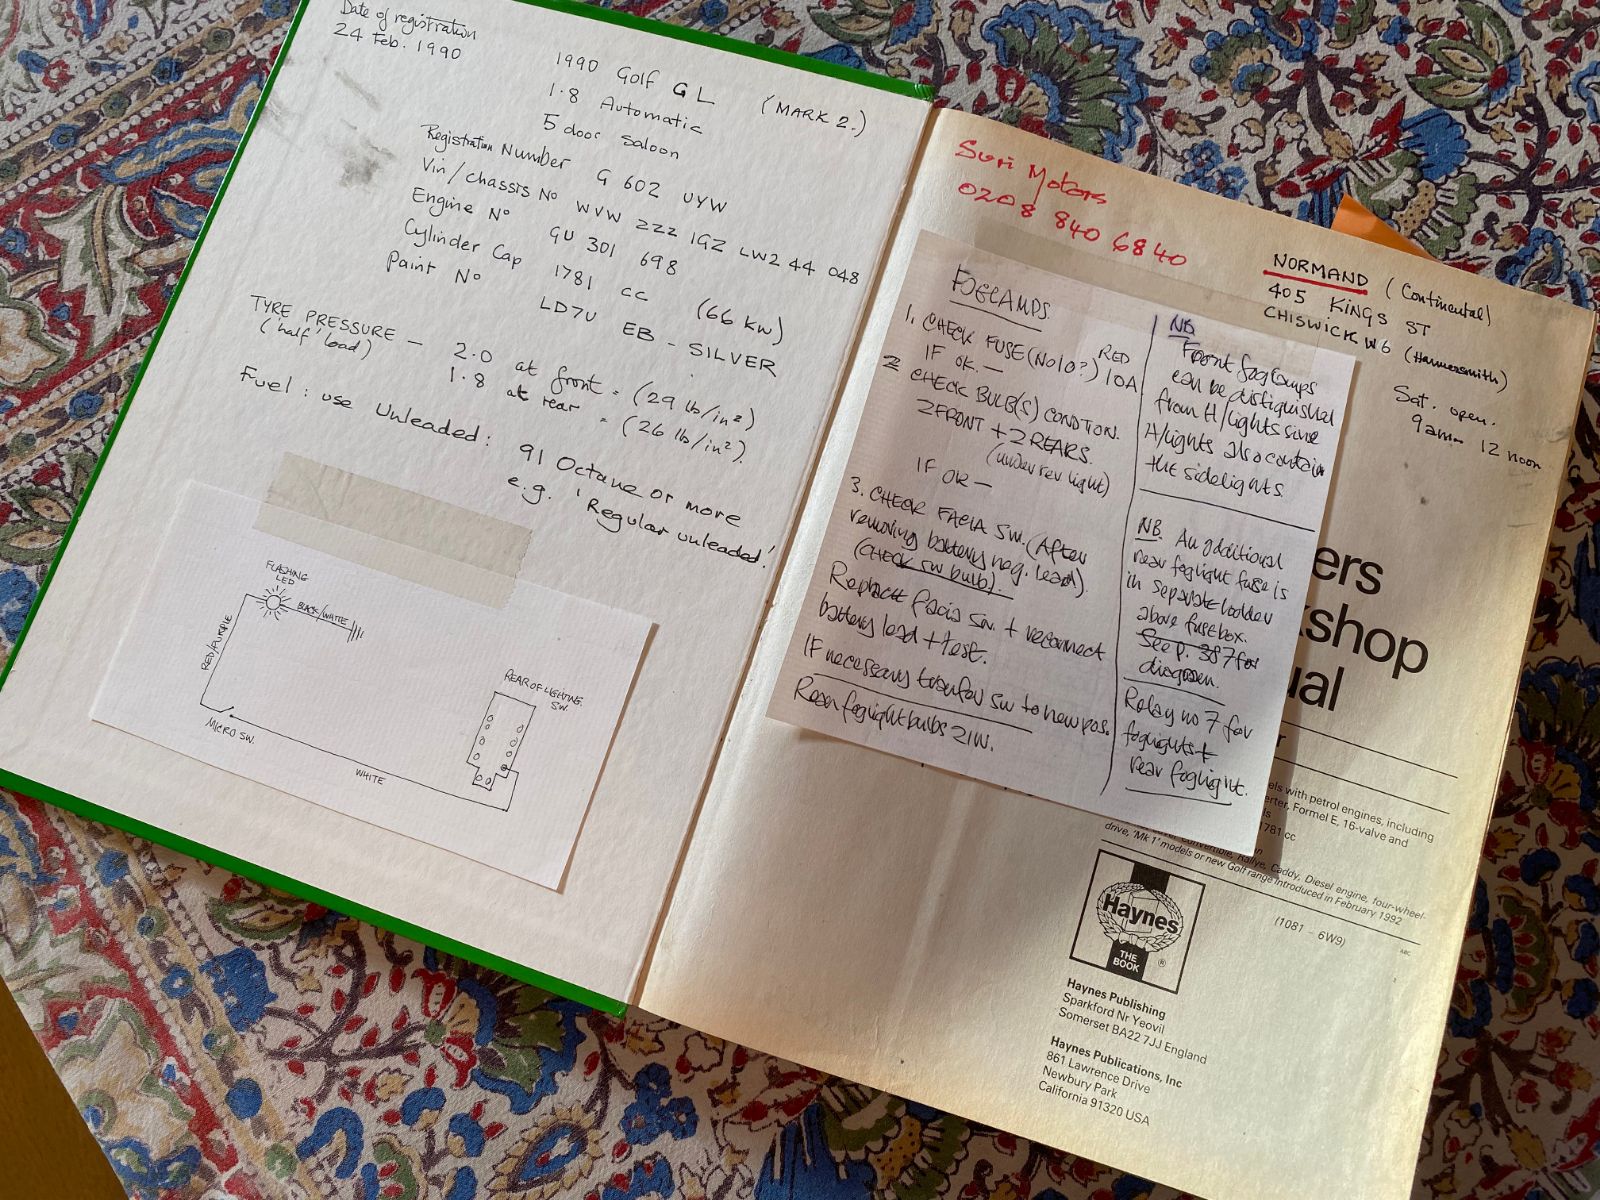 Date of registration
24 Feb. 1990
1990 Golf GL (MARK 2.)
1.8 Automatic
5 door saloon
Registration Number G 602 UYW
Vin/chassis No WVW ZZZ 1GZ LW2 44 048
Engine No GU 301 698
Cylinder Cap 1781 cc (66 KW)
Paint No LD7U EB - SILVER
TYRE PRESSURE - 2.0 at front = (29 lb/in²)
('half' load) 1.8 at rear = (26 lb/in²).
Fuel: use Unleaded: 91 Octane or more
e.g. 'Regular unleaded'
FLASHING
LED
BLACK/WHITE
RED/PURPLE
MICRO SW.
WHITE
REAR OF LIGHTING
SW.
Suri Motors
0208 840 6840
NORMAND (Continental)
405 KINGS ST
CHISWICK W6 (Hammersmith)
Sat. open.
9am - 12 noon
FOGLAMPS
1. CHECK FUSE (No 10?) RED 10A
IF OK. —
2 CHECK BULB(S) CONDITION.
2 FRONT + 2 REARS.
(under rev light)
IF OK —
3. CHECK FACIA SW. (After
removing battery neg. lead)
(CHECK SW bulb).
Replace facia sw. + reconnect
battery lead + test.
IF necessary transfer sw to new pos.
Rear foglight bulbs 21W.
NB
Front foglamps
can be distinguished
from H/lights since
H/lights also contain
the sidelights.
NB. An additional
rear foglight fuse is
in separate holder
above fusebox.
See p. 387 for
diagram.
Relay no 7 for
foglights +
rear foglight.
ers
kshop
ual
r
els with petrol engines, including
erter, Formel E, 16-valve and
ts
1781 cc
Convertible, Rallye, Caddy, Diesel engine, four-wheel-
drive, 'Mk 1' models or new Golf range introduced in February 1992
(1081 - 6W9)
ABC
Haynes
THE
BOOK
®
Haynes Publishing
Sparkford Nr Yeovil
Somerset BA22 7JJ England
Haynes Publications, Inc
861 Lawrence Drive
Newbury Park
California 91320 USA